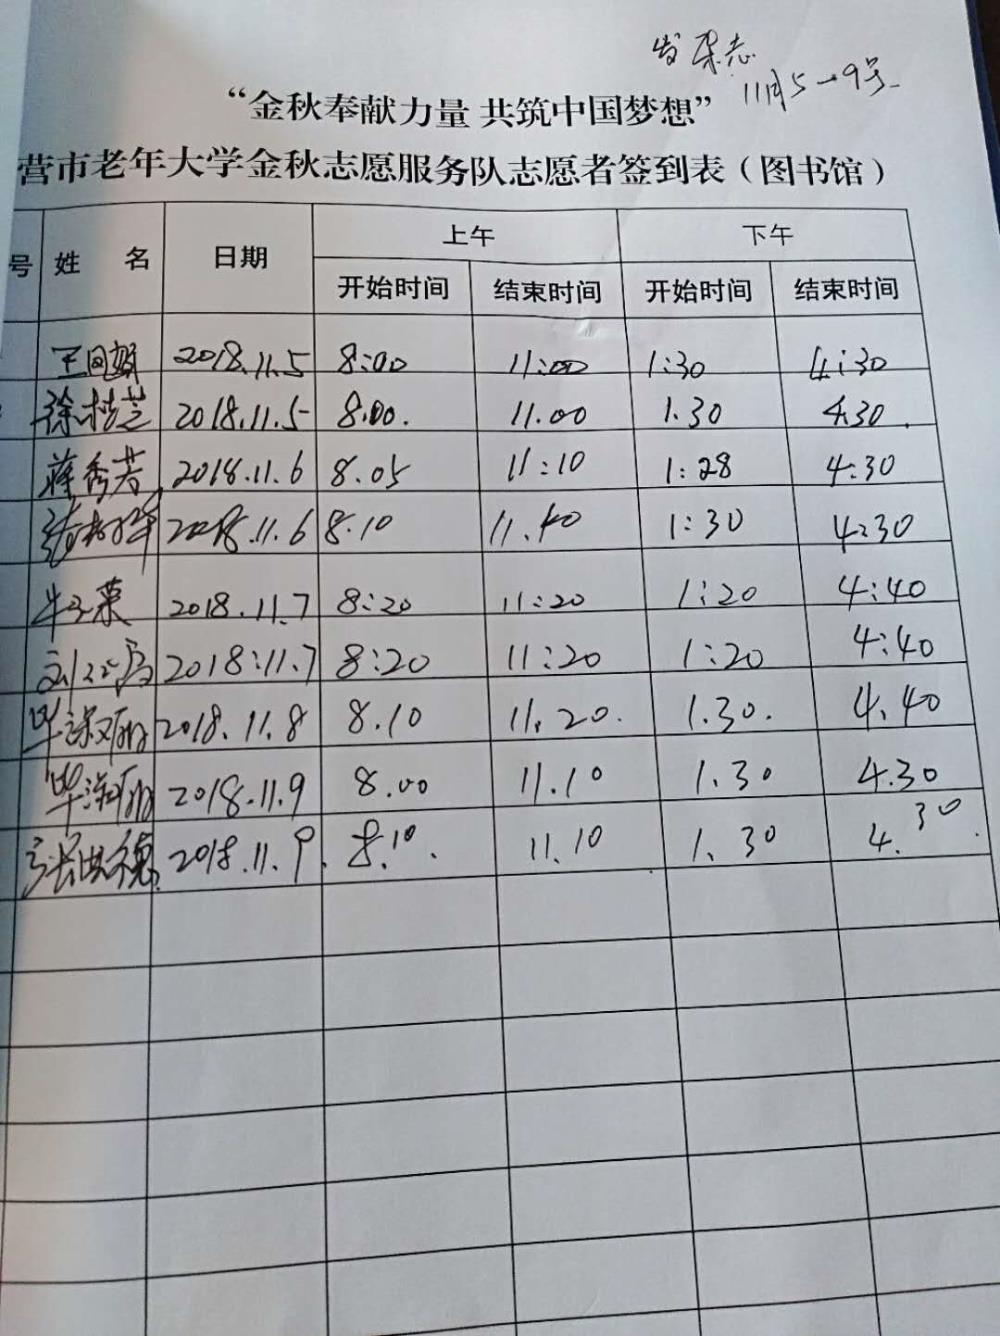 发杂志
11月5-9号
“金秋奉献力量 共筑中国梦想”
营市老年大学金秋志愿服务队志愿者签到表（图书馆）
号 姓 名 日期 上午 下午
开始时间 结束时间 开始时间 结束时间
2018.11.5 8:00 11:00 1:30 4:30
徐桂芝 2018.11.5 8.00. 11.00 1.30 4.30.
蒋秀芳 2018.11.6 8.05 11:10 1:28 4:30
2018.11.6 8.10 11.40 1:30 4:30
牛玉荣 2018.11.7 8:20 11:20 1:20 4:40
2018:11.7 8:20 11:20 1:20 4:40
2018.11.8 8.10 11.20. 1.30. 4.40
2018.11.9 8.00 11.10 1.30 4.30
张洪德 2018.11.9. 8.10. 11.10 1.30 4.30.